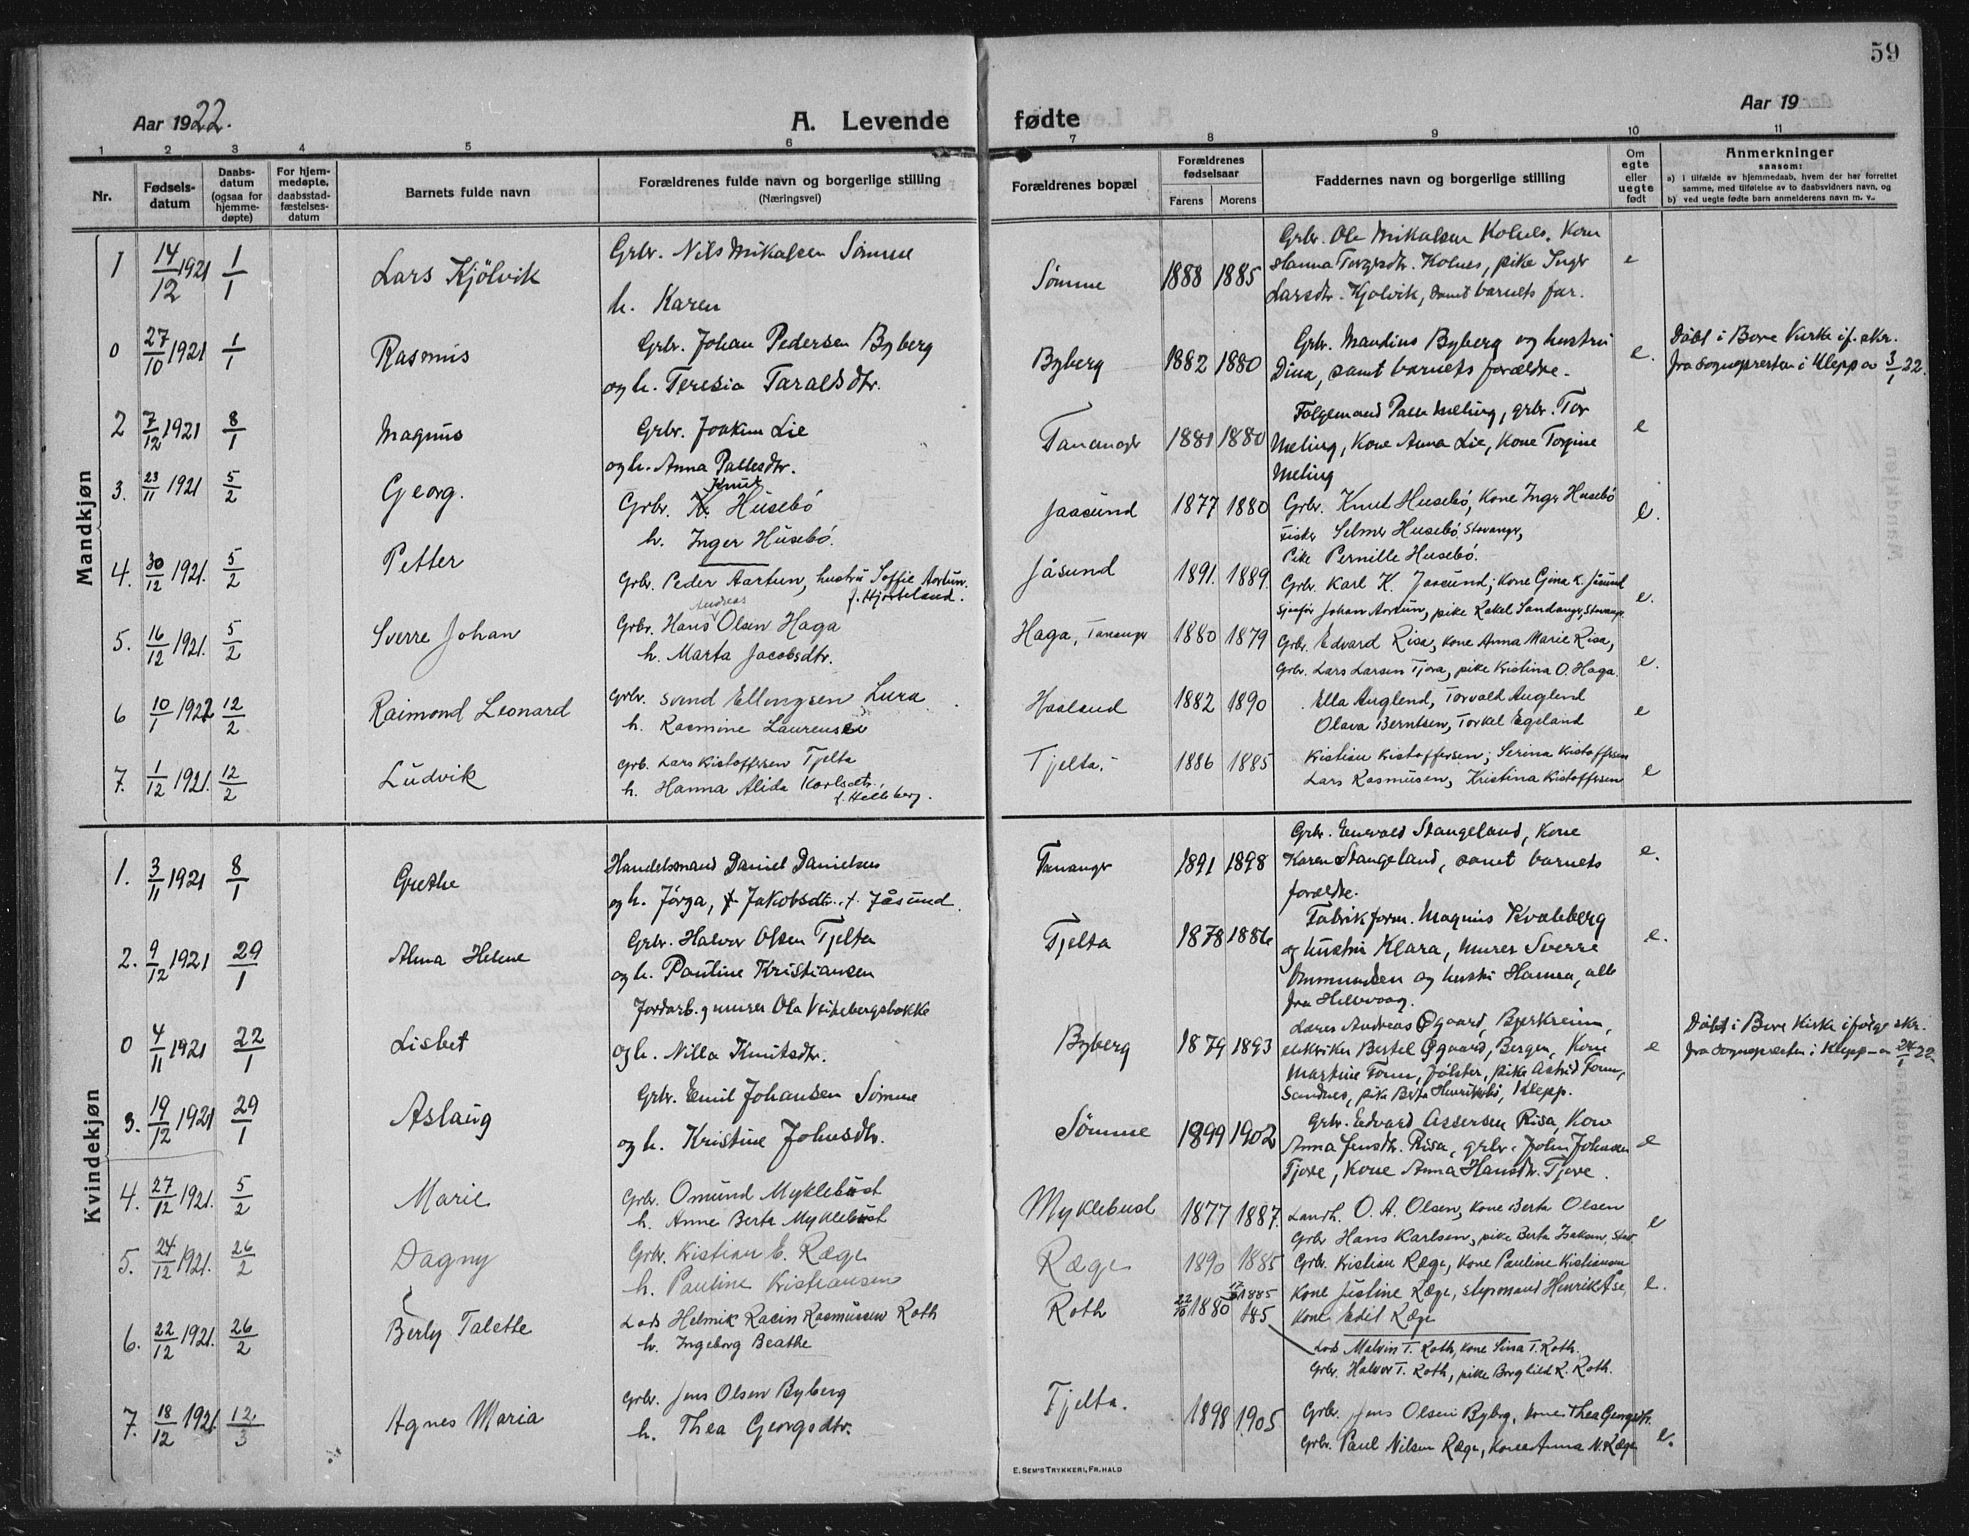 59
Aar 1922.
A. Levende fødte
Aar 19
1 2 3 4 5 6 7 8 9 10 11
Nr.
Fødsels-
datum
Daabs-
datum
(ogsaa for
hjemme-
døpte)
For hjem-
medøpte,
daabsstad-
fæstelses-
datum
Barnets fulde navn
Forældrenes fulde navn og borgerlige stilling
(Næringsvei)
Forældrenes bopæl
Forældrenes
fødselsaar
Farens Morens
Faddernes navn og borgerlige stilling
Om
egte
eller
uegte
født
Anmerkninger
saasom:
a) I tilfælde av hjemmedaab, hvem der har forrettet
samme, med tilføielse av to daabsvidners navn, og
b) ved uegte fødte barn anmelderens navn m. v.
Mandkjøn
1 14/12 1921 1/1 Lars Kjölvik
Grbr. Nils Mikalsen Sömme
h. Karen
Sømme 1888 1885
Grbr. Ole Mikalsen Kolnes, Kone
Hanna Torgesdtr. Kolnes, pike Inger
Larsdtr. Kjolvik, samt barnets far.
e
0 27/10 1921 1/1 Rasmus
Grbr. Johan Pedersen Byberg
og h. Teresia Taralsdtr.
Byberg 1882 1880
Grbr. Maudius Byberg og hustru
Dina, samt barnets forældre.
e.
Döbt i Bore Kirke if. skr.
fra Sognepresten i Klepp av 3/1 22.
2 7/12 1921 8/1 Magnus
Grbr. Joakim Lie
og h. Anna Pallesdtr.
Tananger 1881 1880
Folgemand Palle Meling, grbr. Tor
Meling, Kone Anna Lie, Kone Torgine
Meling
e
3. 23/11 1921 5/2 Georg.
Knut
Grbr. K. Husebö
h. Inger Husebö.
Jaasund 1877 1880
Grbr. Knut Husebö, Kone Inger Husebö
Fisker Selmer Husebö, Stavanger,
Pike Pernille Husebö.
e.
4. 30/12 1921. 5/2 Petter
Grbr. Peder Aartun, hustru Soffie Aartun.
f. Hjorteland.
Jåsund 1891. 1889.
Grbr. Karl K. Jaasund; Kone Gina K. Jåsund
Johan Aartun, pike Rakel Sandanger, Stavanger
e.
5. 16/12 1921. 5/2 Sverre Johan
Andreas
Grbr. Hans Olsen Haga
h. Marta Jacobsdtr.
Haga, Tananger 1880 1879
Grbr. Edvard Risa, Kone Anna Marie Risa,
Grbr. Lars Larsen Tjora, pike Kristina O. Haga.
e.
6 10/1 1922 12/2 Raimond Leonard
Grbr. Svend Ellingsen Lura
h. Rasmine Laurensen
Haaland 1882 1890
Ella Auglend, Torvald Auglend
Olava Berntsen, Torkel Egeland
e
7. 1/12 1921. 12/2 Ludvik
Grb. Lars Kristoffersen Tjelta
h. Hanna Alida Karlsdtr.,
f. Helleberg.
Tjelta. 1886 1885
Kristian Kristoffersen; Serina Kistoffersen
Lars Rasmusen, Kristina Kistoffersen
e
Kvindekjøn
1. 3/11 1921 8/1 Grethe
Handelsmand Daniel Danielsen
og h. Jørga, f. Jakobsdtr. f. Jåsund.
Tananger 1891 1898
Grbr. Enevald Stangeland, Kone
Karen Stangeland, samt barnets
forældre.
e.
2. 9/12 1921 29/1 Alma Helene
Grbr. Halvor Olsen Tjelta
og h. Pauline Kristiansen
Tjelta 1878 1886
Fabrikform. Magnus Kvaleberg
og hustru Klara, murer Sverre
Ommundsen og hustru Hanna, alle
fra Hillevaag.
e.
0 4/11 1921 22/1 Lisbet
Jordarb. og murer Ola Veibergsbakke
og h. Nilla Knutsdtr.
Byberg 1879 1893
Lars Andreas Øgaard, Bjerkreim,
elektriker Bertel Øgaard, Bergen, Kone
Martine Tonn, Jölster, pike Astrid Tonn,
Sandnes, pike Berta Henriksbö, Klepp.
e
Döbt i Bore Kirke ifölge skr.
fra Sognepresten i Klepp av 24/1 22
3. 19/12 1921 29/1 Aslaug
Grbr. Emil Johansen Sömme
og h. Kristine Johnsdtr.
Sømme 1899 1902
Grbr. Edvard Assersen Risa, Kone
Anna Jensdtr. Risa, grbr. John Johnsen
Tjore, Kone Anna Hansdtr. Tjore.
e
4. 27/12 1921. 5/2 Marie
Grbr. Omund Myklebust
h. Anne Berta Myklebust
Myklebust 1877 1887.
Landh. O. A. Olsen, Kone Berta Olsen
Grbr Hans Karlsen, pike Berta Isaksen, Stav.
e
5. 24/12 1921. 26/2 Dagny
Grbr. Kistian E. Ræge
h. Pauline Kristiansen
Ræge 1890 1885
Grbr. Kristian Ræge, Kone Pauline Kistiansen
Kone Justine Ræge, styrmand Henrik Åse,
Kone Edel Ræge
e.
6. 22/12 1921. 26/2 Berly Talette
Lods Helmik Racin Rasmussen Roth
h. Ingeborg Beathe
Roth 22/10 1880 1885
185
Lods Malvin T. Roth, Kone Sina T. Roth.
Grbr. Halvor T. Roth, pike Borghild R. Roth.
7. 18/12 1921. 12/3 Agnes Maria
Grbr. Jens Olsen Byberg
h. Thea Georgsdtr.
Tjelta. 1898 1905
Grbr. Jens Olsen Byberg, Kone Thea Georgsdtr.
Grbr. Paul Nilsen Ræge, Kone Anna N. Ræge
e.
E. SEM'S TRYKKERI, FR.HALD